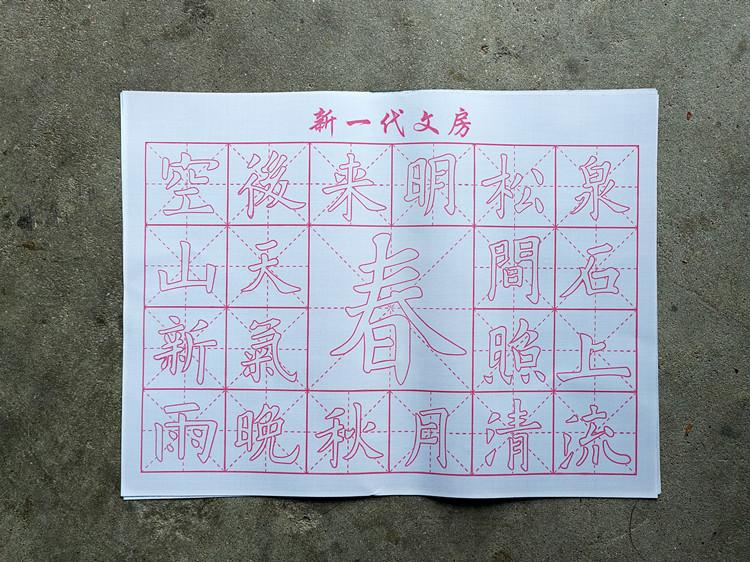 新一代文房
空山新雨
後天氣晚
来秋
春
明月
松間照清
泉石上流